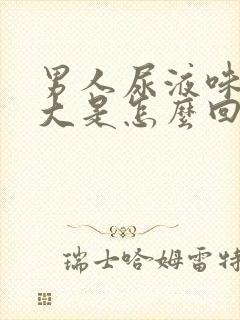 男人尿液味
大是怎麼回
瑞士哈姆雷特